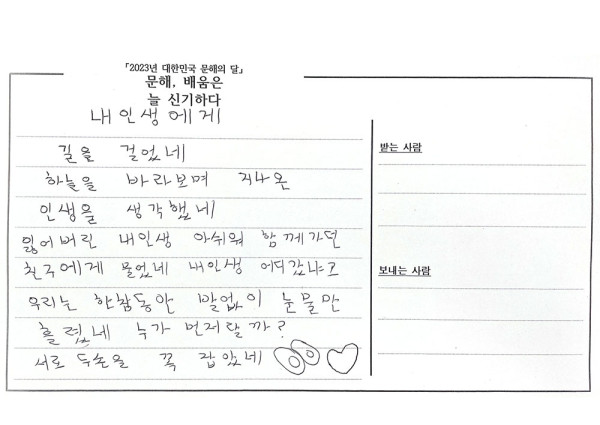 「2023년 대한민국 문해의 달」
문해, 배움은
늘 신기하다
내 인생에게
길을 걸었네
하늘을 바라보며 지나온
인생을 생각했네
잃어버린 내인생 아쉬워 함께가던
친구에게 물었네 내인생 어디갔냐고
우리는 한참동안 말없이 눈물만
흘렸네 누가 먼저랄까?
서로 두손을 꼭 잡았네
받는 사람
보내는 사람